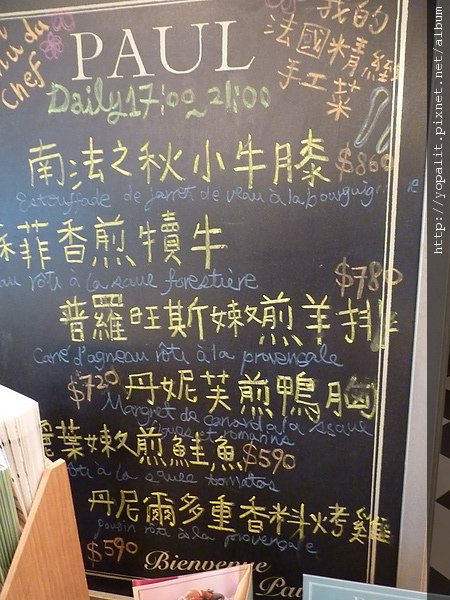 Chef
我的
法國精緻
手工菜
PAUL
Daily 17:00~21:00
南法之秋小牛膝 $860
Estouffade de jarret de veau à la bourguignonne
菲香煎犢牛
rôti à la saue forestière
$780
普羅旺斯嫩煎羊排
Carré d'agneau rôti à la provençale
$720 丹妮芙煎鴨胸
Magret de canard à la sauce
romarins
葉嫩煎鮭魚 $590
rôti à la sauce tomatos
丹尼爾多重香料烤雞
rôti à la provençale
$590
Bienvenue
Paul
http://yopalit.pixnet.net/album